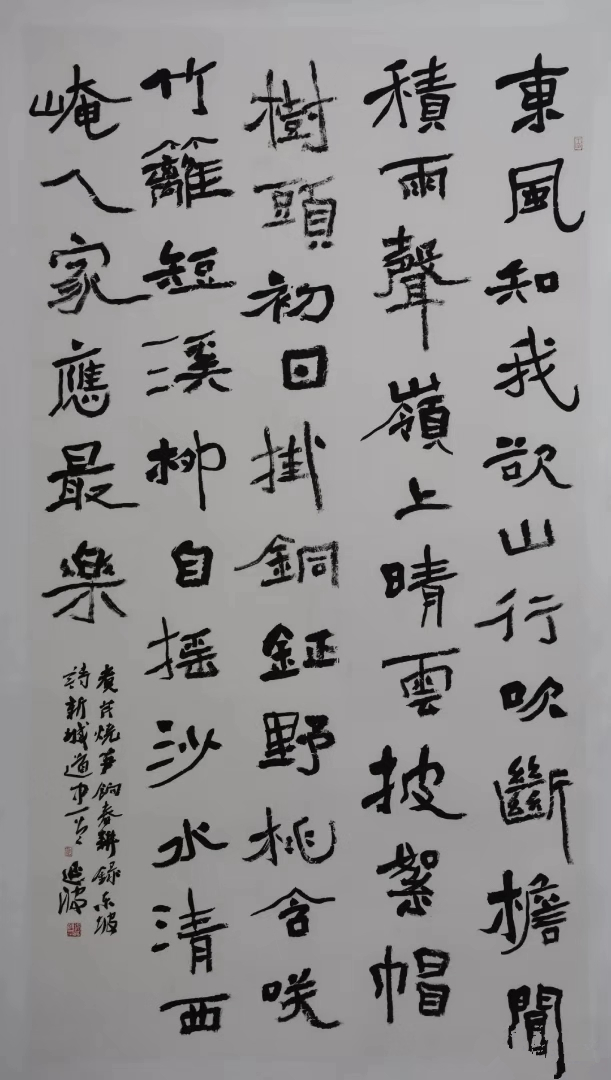 東風知我欲山行吹斷檐間
積雨聲嶺上晴雲披絮帽
樹頭初日掛銅鉦野桃含咲
竹籬短溪柳自摇沙水清西
崦人家應最樂
煮芹燒笋餉春耕録東坡
詩新城道中一首